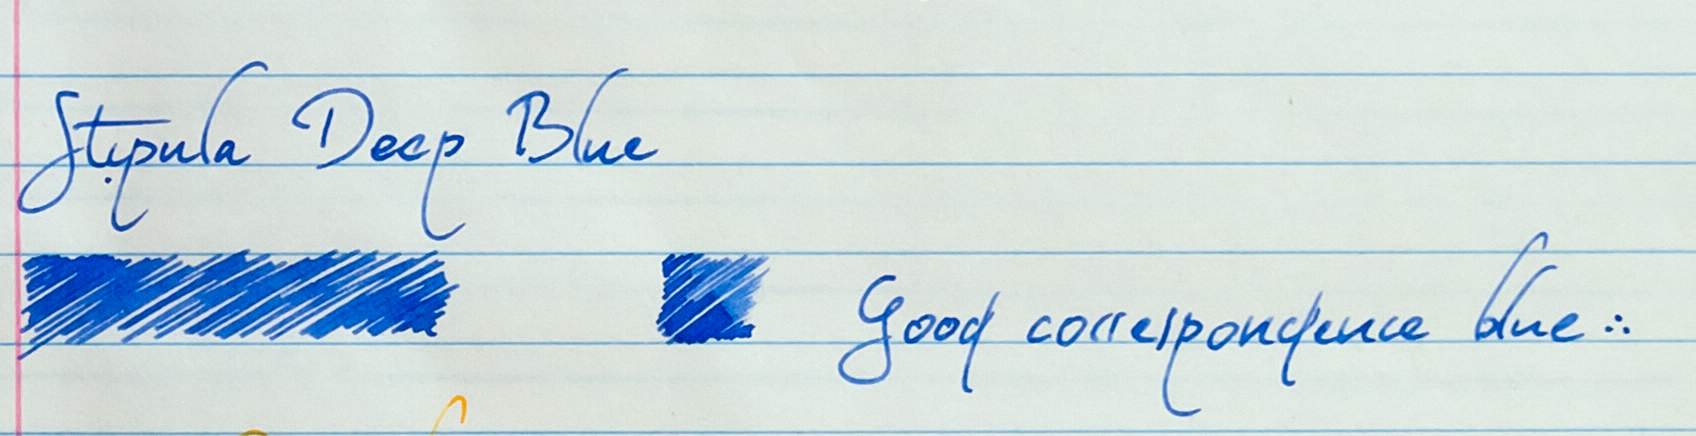 Stipula Deep Blue
Good correspondence blue ∴